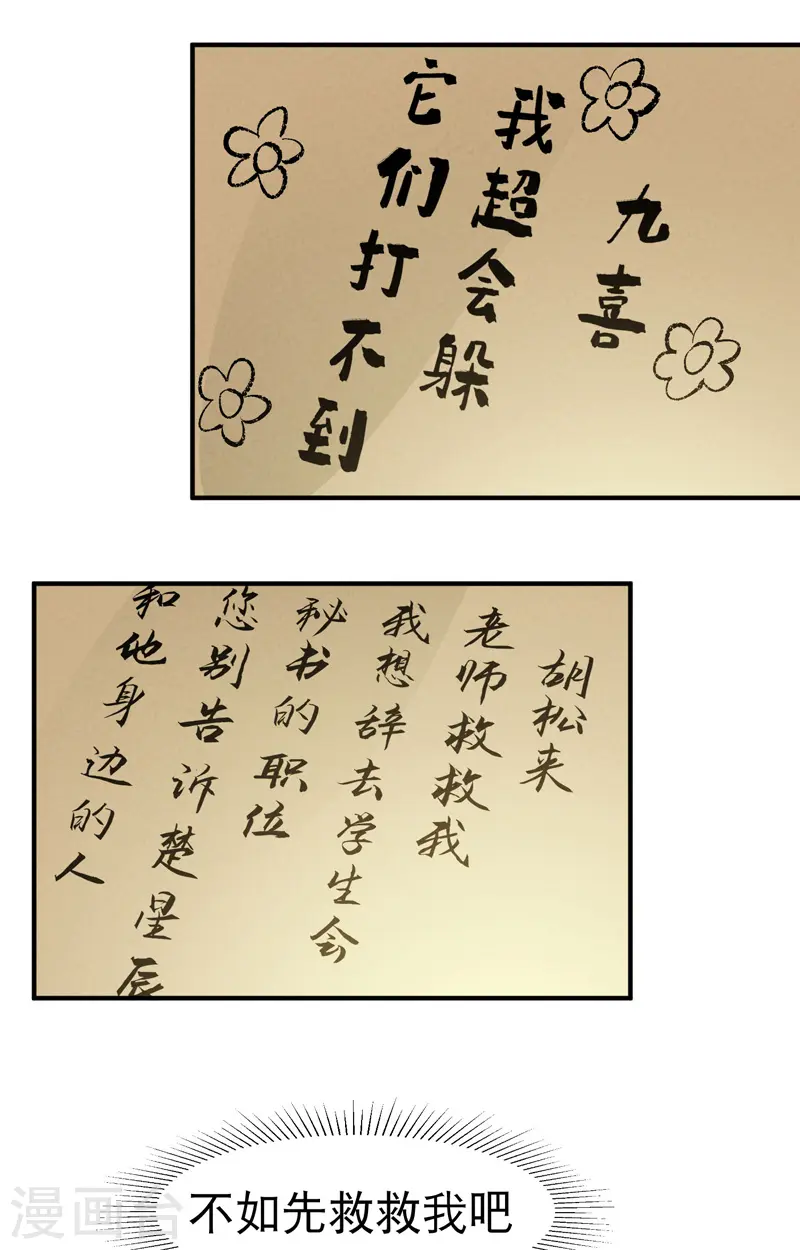 九喜
我超会躲
它们打不到
胡松夹
老师救救我
我想辞去学生会
秘书的职位
您别告诉楚星辰
和他身边的人
不如先救救我吧
漫画台